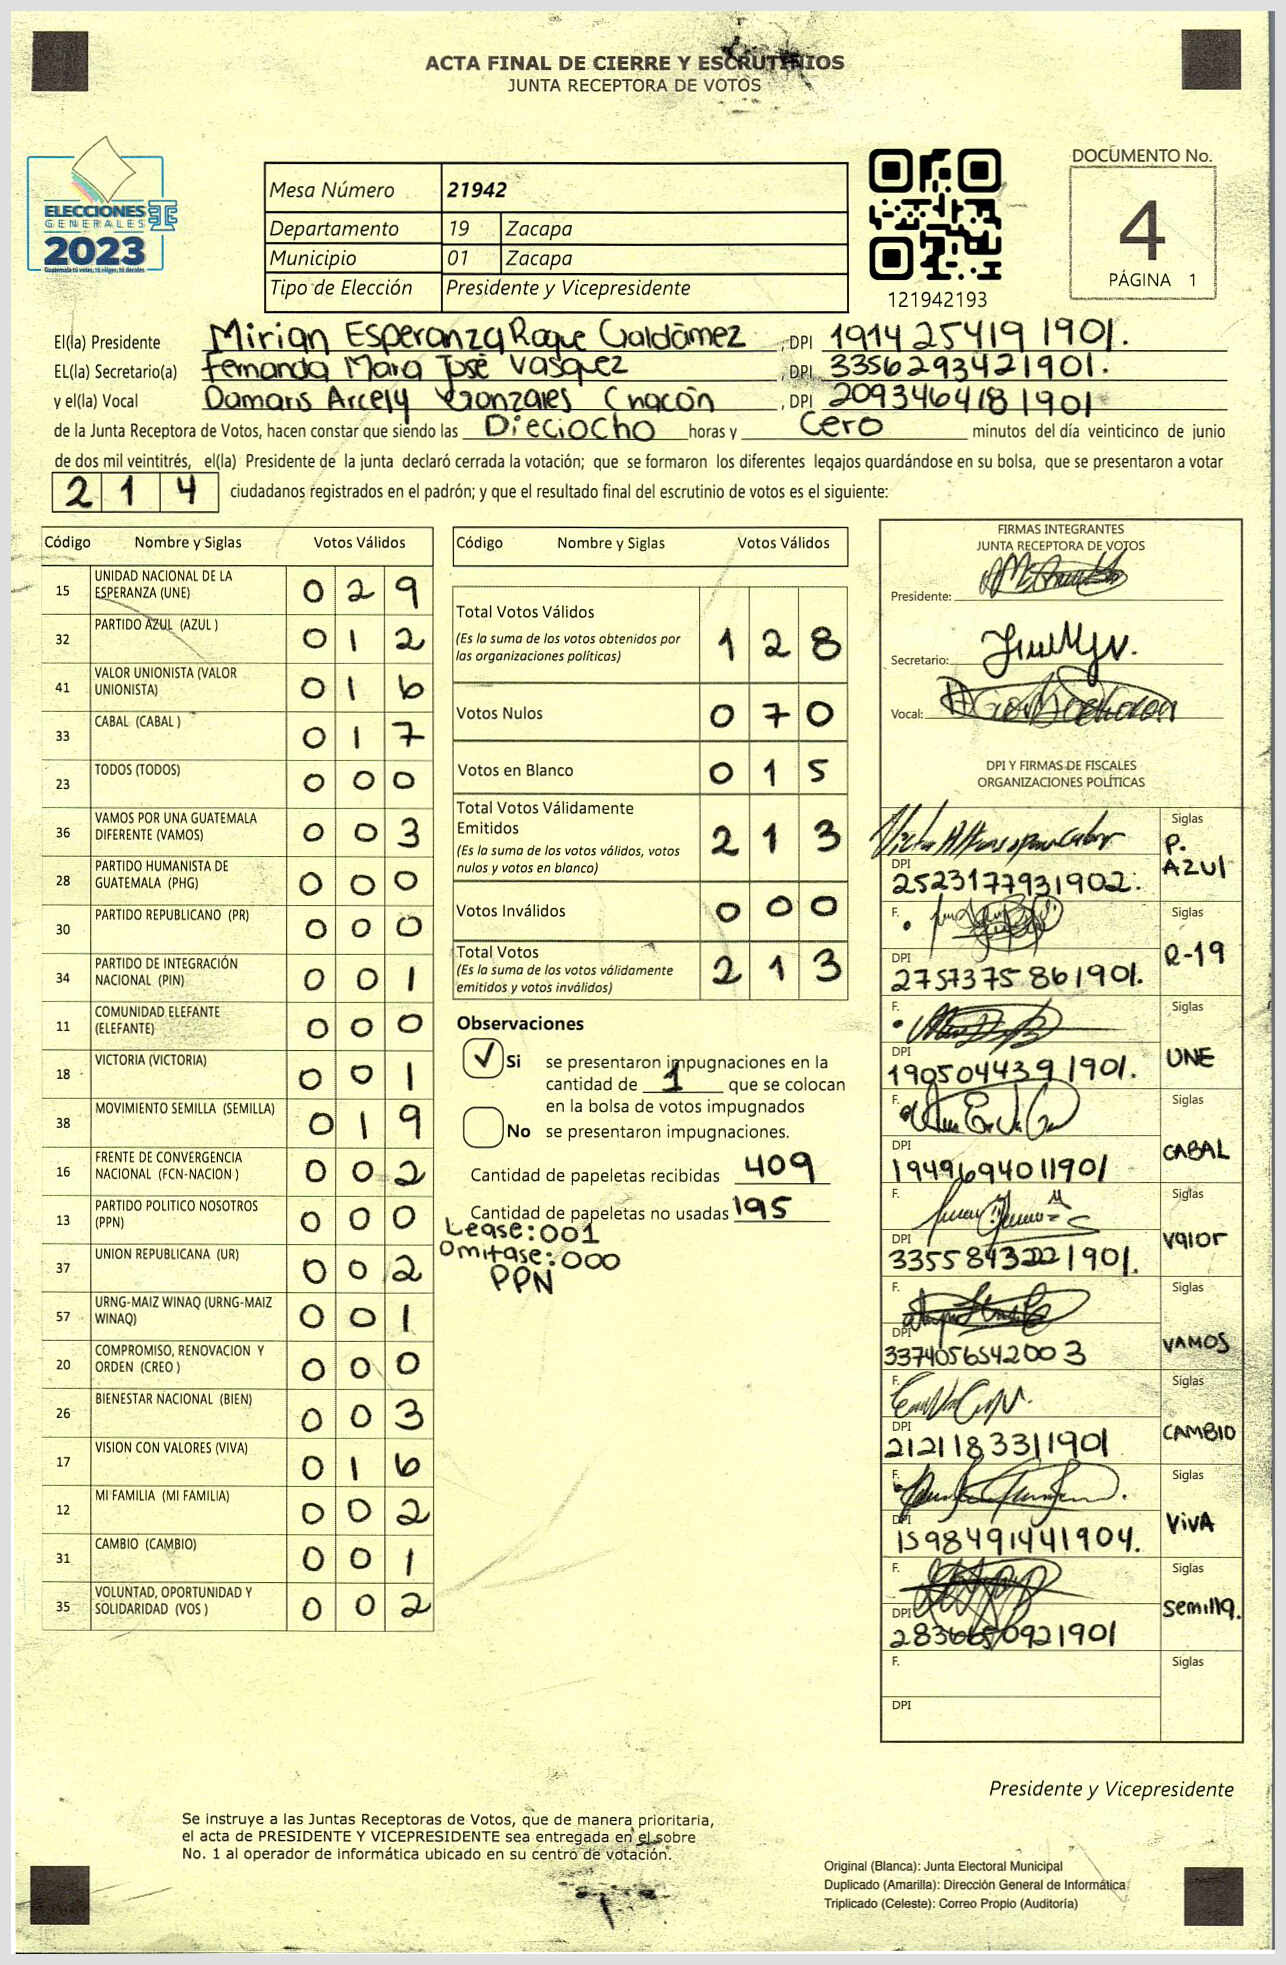 ACTA FINAL DE CIERRE Y ESCRUTINIOS
JUNTA RECEPTORA DE VOTOS
ELECCIONES
GENERALES
2023
Guatemala tú votas, tú eliges, tú decides
Mesa Número 21942
Departamento 19 Zacapa
Municipio 01 Zacapa
Tipo de Elección Presidente y Vicepresidente
121942193
DOCUMENTO No.
4
PÁGINA 1
El(la) Presidente Mirian Esperanza Roque Galdámez , DPI 1914 25419 1901.
EL(la) Secretario(a) Fernanda Maria José Vasquez , DPI 3356293421901.
y el(la) Vocal Damaris Arcely Gonzales Chacón , DPI 2093464181901
de la Junta Receptora de Votos, hacen constar que siendo las Dieciocho horas y Cero minutos del día veinticinco de junio
de dos mil veintitrés, el(la) Presidente de la junta declaró cerrada la votación; que se formaron los diferentes legajos guardándose en su bolsa, que se presentaron a votar
214 ciudadanos registrados en el padrón; y que el resultado final del escrutinio de votos es el siguiente:
Código Nombre y Siglas Votos Válidos
15 UNIDAD NACIONAL DE LA ESPERANZA (UNE) 029
32 PARTIDO AZUL (AZUL ) 012
41 VALOR UNIONISTA (VALOR UNIONISTA) 016
33 CABAL (CABAL ) 017
23 TODOS (TODOS) 000
36 VAMOS POR UNA GUATEMALA DIFERENTE (VAMOS) 003
28 PARTIDO HUMANISTA DE GUATEMALA (PHG) 000
30 PARTIDO REPUBLICANO (PR) 000
34 PARTIDO DE INTEGRACIÓN NACIONAL (PIN) 001
11 COMUNIDAD ELEFANTE (ELEFANTE) 000
18 VICTORIA (VICTORIA) 001
38 MOVIMIENTO SEMILLA (SEMILLA) 019
16 FRENTE DE CONVERGENCIA NACIONAL (FCN-NACION ) 002
13 PARTIDO POLITICO NOSOTROS (PPN) 000
37 UNION REPUBLICANA (UR) 002
57 URNG-MAIZ WINAQ (URNG-MAIZ WINAQ) 001
20 COMPROMISO, RENOVACION Y ORDEN (CREO ) 000
26 BIENESTAR NACIONAL (BIEN) 003
17 VISION CON VALORES (VIVA) 016
12 MI FAMILIA (MI FAMILIA) 002
31 CAMBIO (CAMBIO) 001
35 VOLUNTAD, OPORTUNIDAD Y SOLIDARIDAD (VOS ) 002
Código Nombre y Siglas Votos Válidos
Total Votos Válidos 128
(Es la suma de los votos obtenidos por
las organizaciones políticas)
Votos Nulos 070
Votos en Blanco 015
Total Votos Válidamente
Emitidos 213
(Es la suma de los votos válidos, votos
nulos y votos en blanco)
Votos Inválidos 000
Total Votos 213
(Es la suma de los votos válidamente
emitidos y votos inválidos)
Observaciones
Si se presentaron impugnaciones en la
cantidad de 1 que se colocan
en la bolsa de votos impugnados
No se presentaron impugnaciones.
Cantidad de papeletas recibidas 409
Cantidad de papeletas no usadas 195
Lease: 001
Omitase: 000
PPN
FIRMAS INTEGRANTES
JUNTA RECEPTORA DE VOTOS
Presidente:
Secretario:
Vocal:
DPI Y FIRMAS DE FISCALES
ORGANIZACIONES POLÍTICAS
Siglas P. AZUl
DPI 2523177931902.
F. Siglas R-19
DPI 2757375 861901.
F. Siglas UNE
DPI 190504439 1901.
F. Siglas CABAL
DPI 1949694011901
F. Siglas Valor
DPI 3355843221901.
F. Siglas VAMOS
DPI 3374056542003
F. Siglas CAMBIO
DPI 2121183311901
F. Siglas VIVA
DPI 1598491441904.
F. Siglas Semilla.
DPI
F. Siglas
DPI
Presidente y Vicepresidente
Se instruye a las Juntas Receptoras de Votos, que de manera prioritaria,
el acta de PRESIDENTE Y VICEPRESIDENTE sea entregada en el sobre
No. 1 al operador de informática ubicado en su centro de votación.
Original (Blanca): Junta Electoral Municipal
Duplicado (Amarilla): Dirección General de Informática
Triplicado (Celeste): Correo Propio (Auditoría)